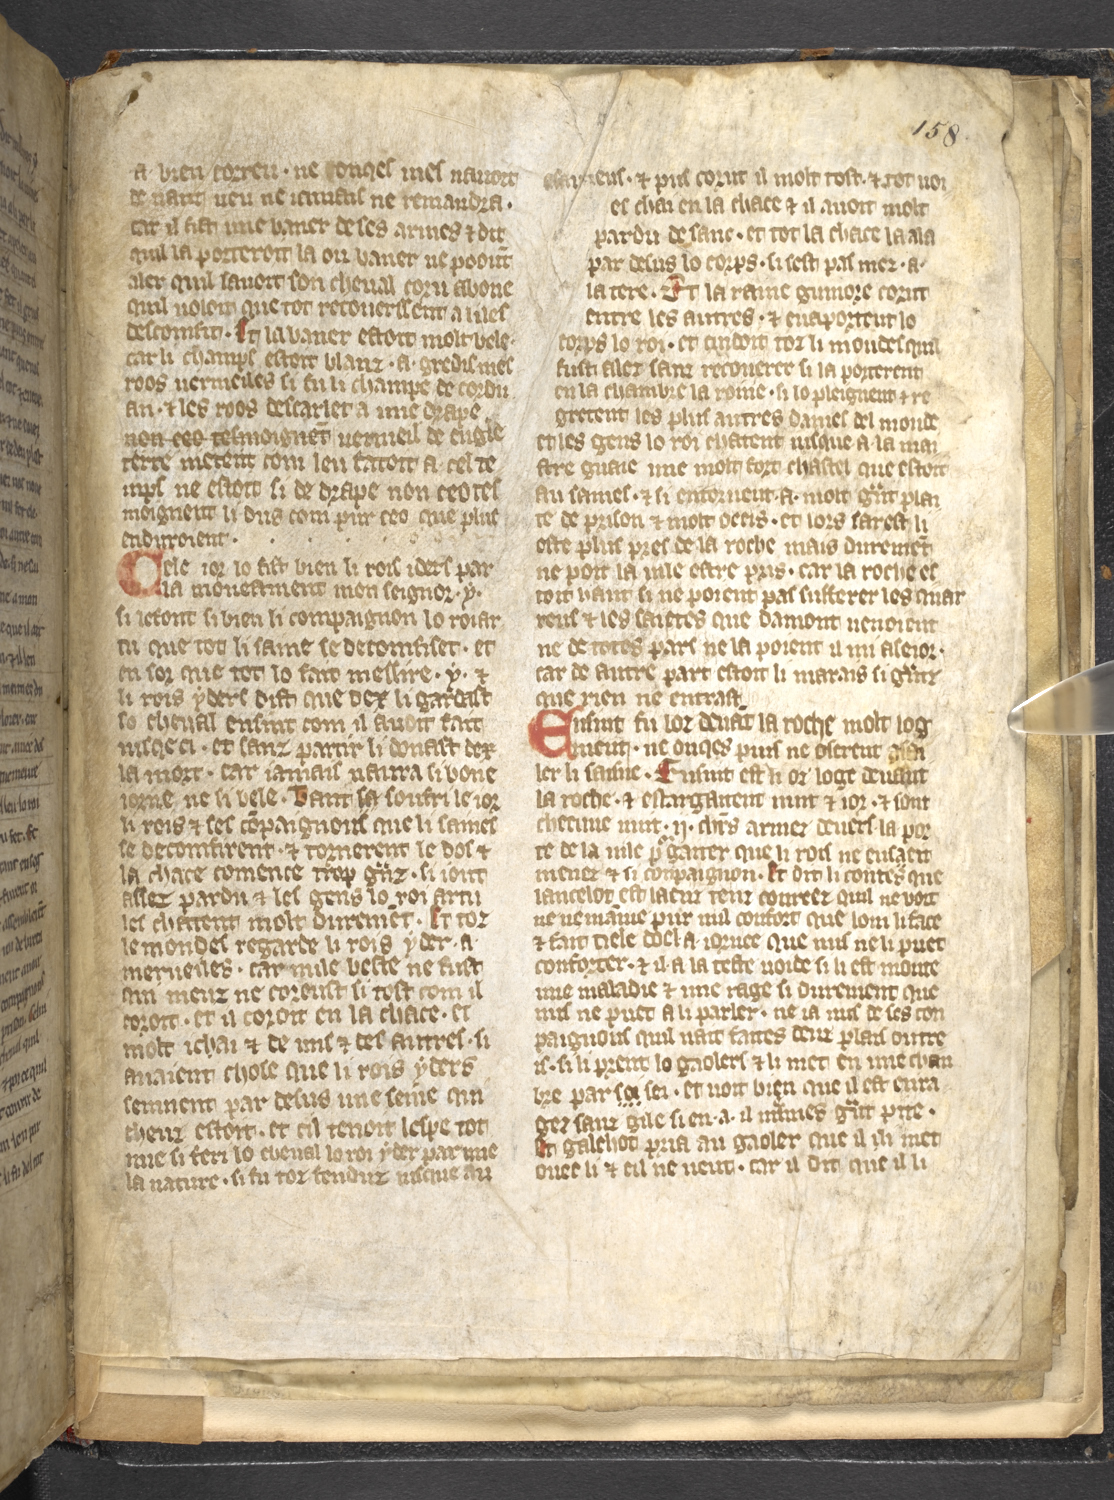 158
a bien correu · ne onqes mes nauoit
de uant ueu ne iamais ne remandra ·
car il fist une baner de ses armes ⁊ dit
quil la porteroit la ou baner ne pooit
aler quil sauoit son cheual coru a bone
quil uoloit que tot recouerissent a lui
descomfit · Et la baner estoit molt bele ·
car li champs estoit blanz · a · gredis mes
roos uermeilles si fu li champe de cordu
an · ⁊ les roos descarlet a une drape
non ceo tesmoignēt uermeil de engle
terre metent com len faisoit a cel te
mps ne estoit si de drape non ceo tes
moignent li dus com pur ceo que plus
enduroient ·
Cele ior lo fist bien li rois iders par
la monestment mon seignor · y ·
si lefont si bien li compaignon lo roi ar
tu que tot li saine se decomfiset · et
en sor que tot lo fait messire · y · ⁊
li rois yders dist que dex li gardast
so cheual ensint com il auoit fait
iusqe ci · et sanz partir li donast dex
la mort · car iamais naura si bone
iorne ne si bele · Tant sa sonfri le ior
li rois ⁊ ses cōpaignons que li saines
se decomfirent · ⁊ tornerent le dos ⁊
la chace comence trop gr̄nz · si iont
assez pardu ⁊ les gens lo roi artu
les chacent molt duremēt · Et toz
le mondes regarde li rois yder · a
merueilles · car nule beste ne fust
qui menz ne coreust si tost com il
coroit · et il coroit en la chace · et
molt ichai ⁊ de uns ⁊ des autres · si
auaient chose que li rois yders
semnent par desus une seine qui
cheuz estoit · et cil tenoit lespe tot
nue si feri lo cheual lo roi yder par mie
la nature · si fu toz fenduz iusque au
⁊ puis corut il molt tost · ⁊ tot uoi
es chai en la chace ⁊ il auoit molt
pardu de sanc · et tot la chace la ala
par desus lo corps · si sest pas mez · a ·
la tere · Et la raine guniore corut
entre les autres · ⁊ enaportent lo
corps lo roi · et cuidoit toz li mondes quil
fust alez sanz recouerer si la porterent
en la chambre la roine · si lo pleignent ⁊ re
gretent les plus autres dames del monde
et les gens lo roi chacent iusque a la mai
stre guaie une molt fort chastel que estoit
au saines · ⁊ si entornent · a · molt gr̄nt plai
te de prison ⁊ molt occis · et lors sarest li
oste plus pres de la roche mais duremēt
ne poit la uile estre pris · car la roche es
toit haut si ne poient pas sufferer les quar
reus ⁊ les saietes que damont uenoient
ne de totes pars ne la poient il mi aseior ·
car de autre part estoit li marais si gr̄nz
que rien ne entrast
Ensint fu lor deuāt la roche molt log
ement · ne onqes puis ne oserent assa
ler li saisne · Ensint est li or loge deuant
la roche · ⁊ estargaitent nuit ⁊ ior · ⁊ sont
checune nuit · ij · ch̄rs armez deuers la por
te de la uile pᵒ gaiter que li rois ne ensaent
menez ⁊ si conpaignon · Et dit li contes que
lancelot est laenz tenz contrez quil ne boit
ne ne maiue pur nul confort que lom li face
⁊ fait tiele doel a iornee que nus ne li puet
conforter · ⁊ il · a la teste uoide si li est monte
une maladie ⁊ une rage si durement que
nus ne puet a li parler · ne ia nus de ses con
paignons quil nait faites deuz plais outre
is · si li prent lo gaolers ⁊ li met en une cham
bre par soi sei · et uoit bien que il est enra
gez sanz gile si en · a · il m̄mes gr̄nt pite ·
Et galehot pria au gaoler que il ili met
ouec li ⁊ cil ne ueut · car il dit que il li